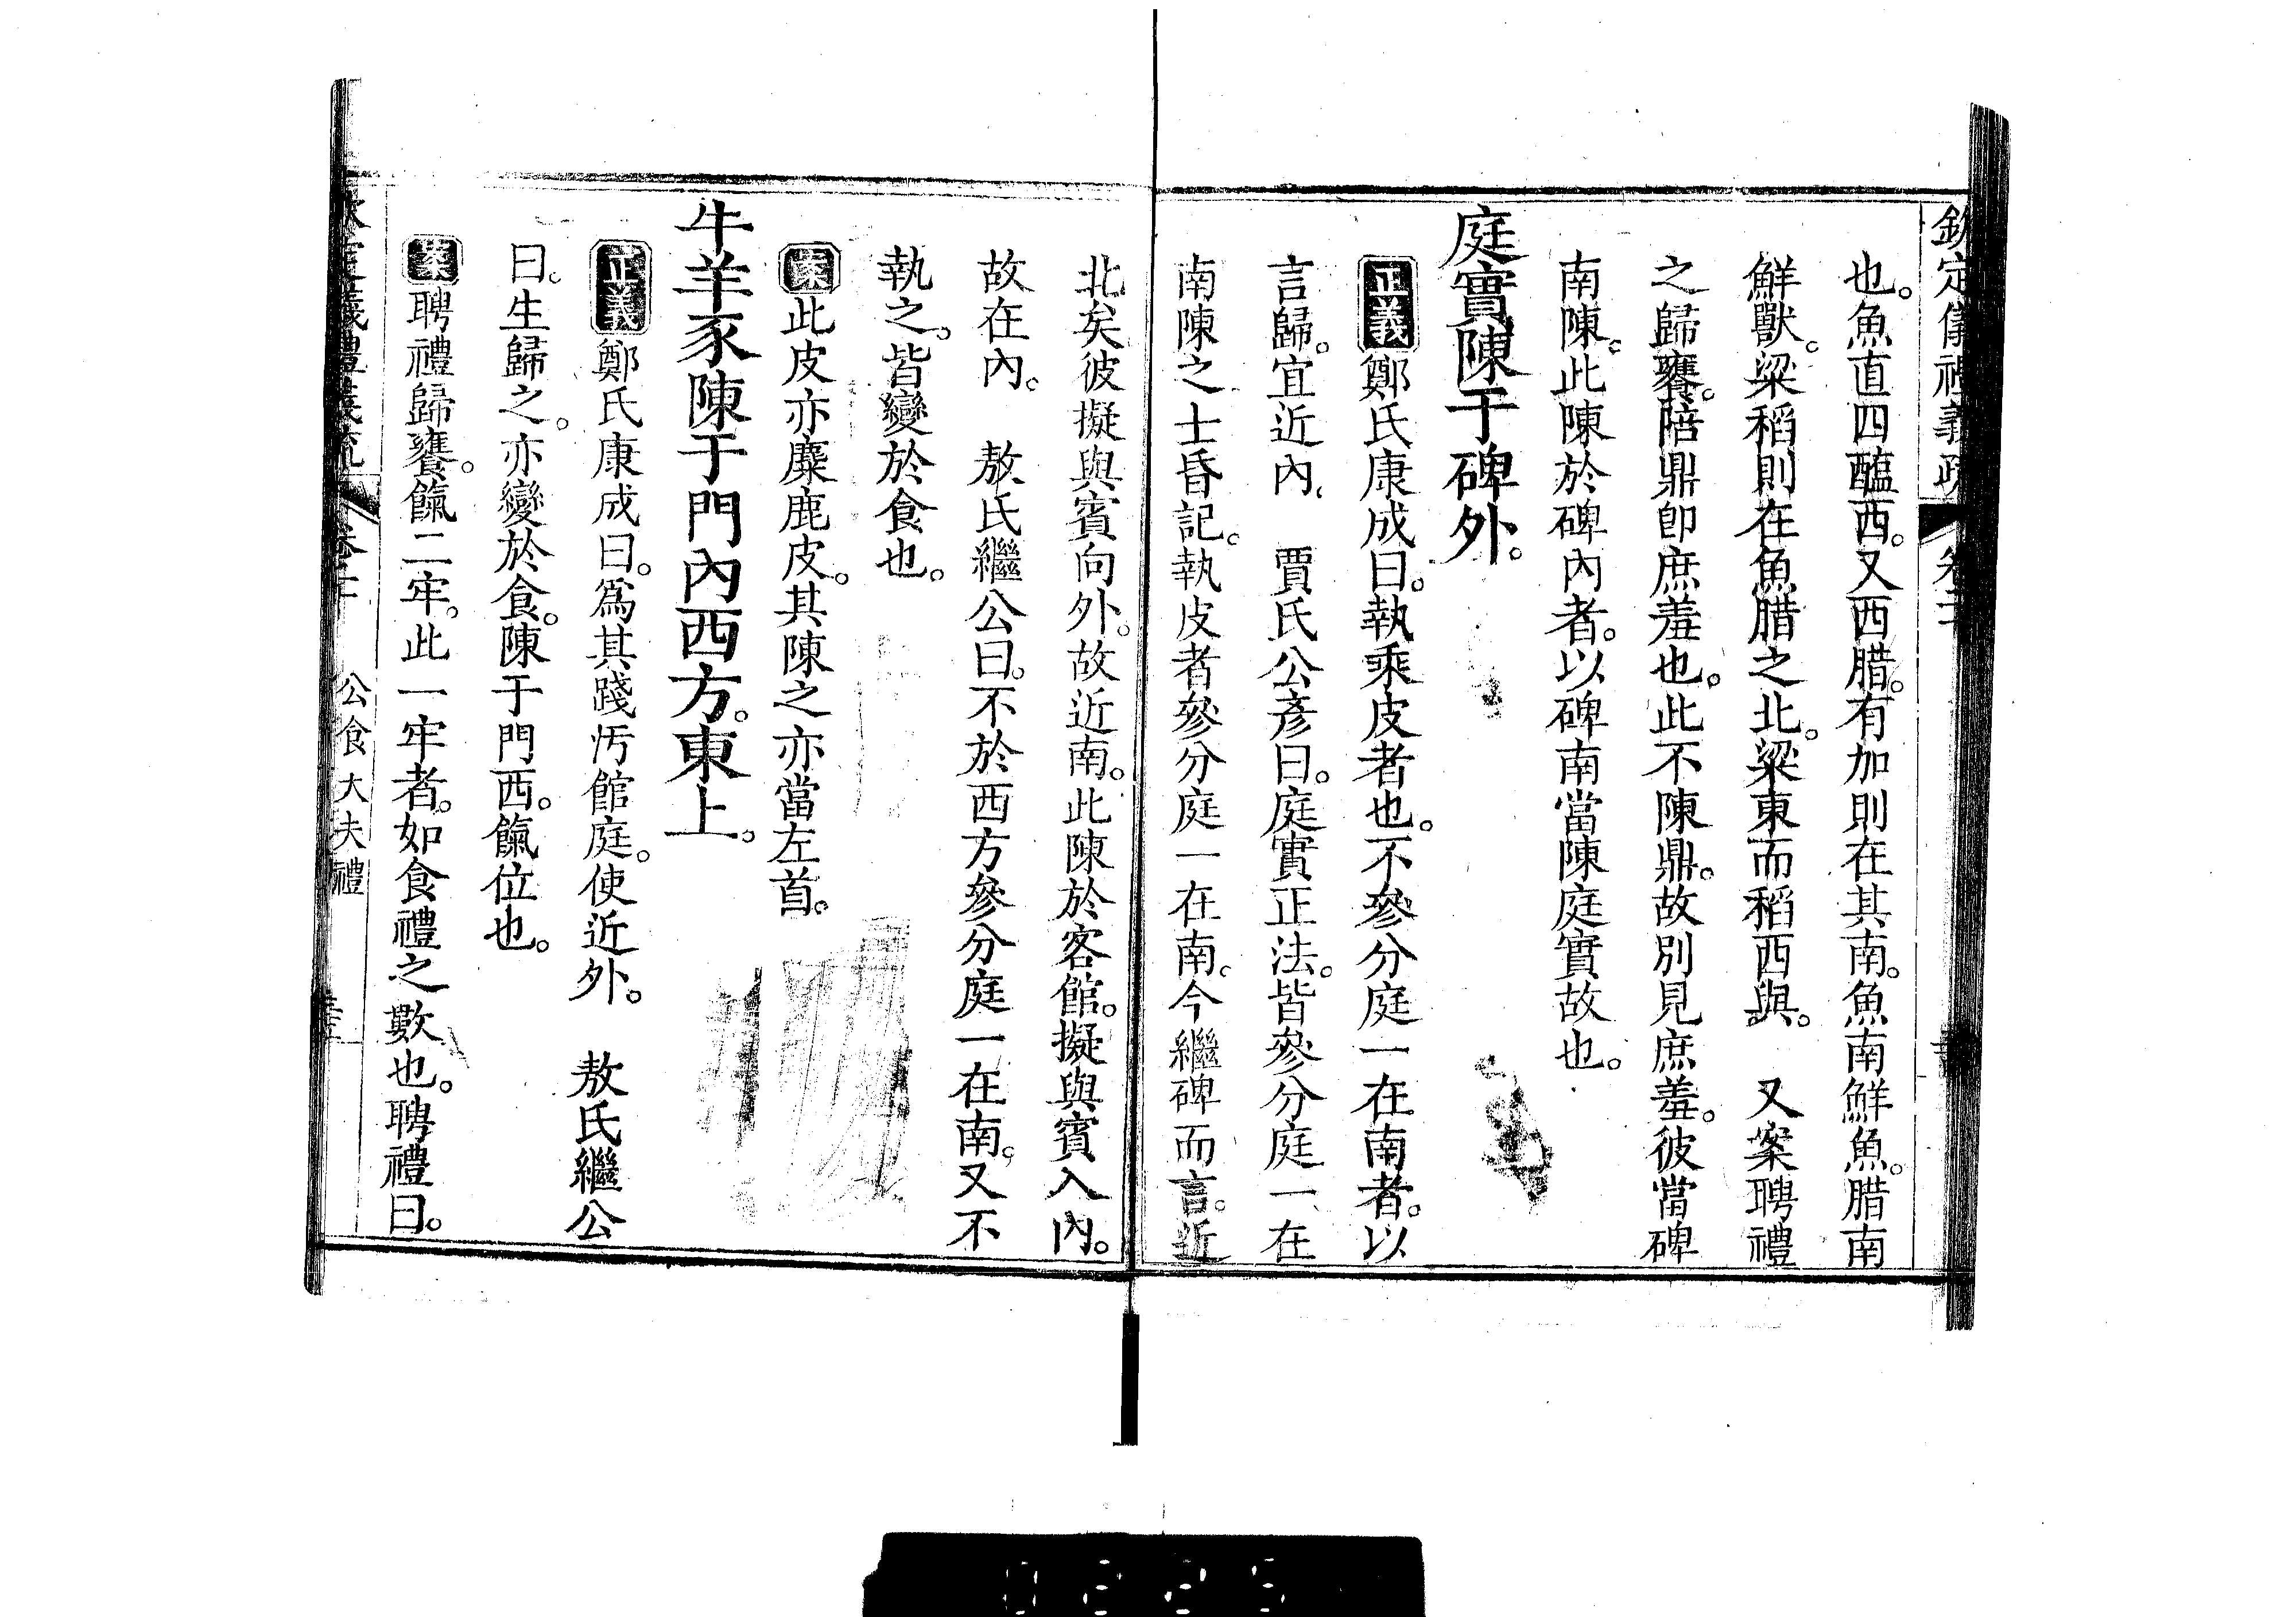 欽定儀禮義疏 卷二
也。魚直四醢西。又西腊。有加則在其南。魚南鮮魚。腊南
鮮獸。粱稻則在魚腊之北。粱東而稻西與。 又案聘禮
之歸饔。陪鼎卽庶羞也。此不陳鼎。故別見庶羞。彼當碑
南陳。此陳於碑內者。以碑南當陳庭實故也。
庭實陳于碑外。
正義鄭氏康成曰。執乘皮者也。不參分庭一在南者。以
言歸。宜近內。 賈氏公彥曰。庭實正法。皆參分庭一在
南陳之士昏記。執皮者參分庭一在南。今繼碑而言。近
北矣彼擬與賓向外。故近南。此陳於客館。擬與賓入內。
故在內。 敖氏繼公曰。不於西方參分庭一在南。又不
執之。皆變於食也。
案此皮亦麋鹿皮。其陳之亦當左首。
牛羊豕陳于門內西方。東上。
正義鄭氏康成曰。爲其踐汚館庭。使近外。 敖氏繼公
曰。生歸之。亦變於食。陳于門西。餼位也。
案聘禮歸饔。餼二牢。此一牢者。如食禮之數也。聘禮曰。
欽定儀禮義疏 卷二 公食大夫禮